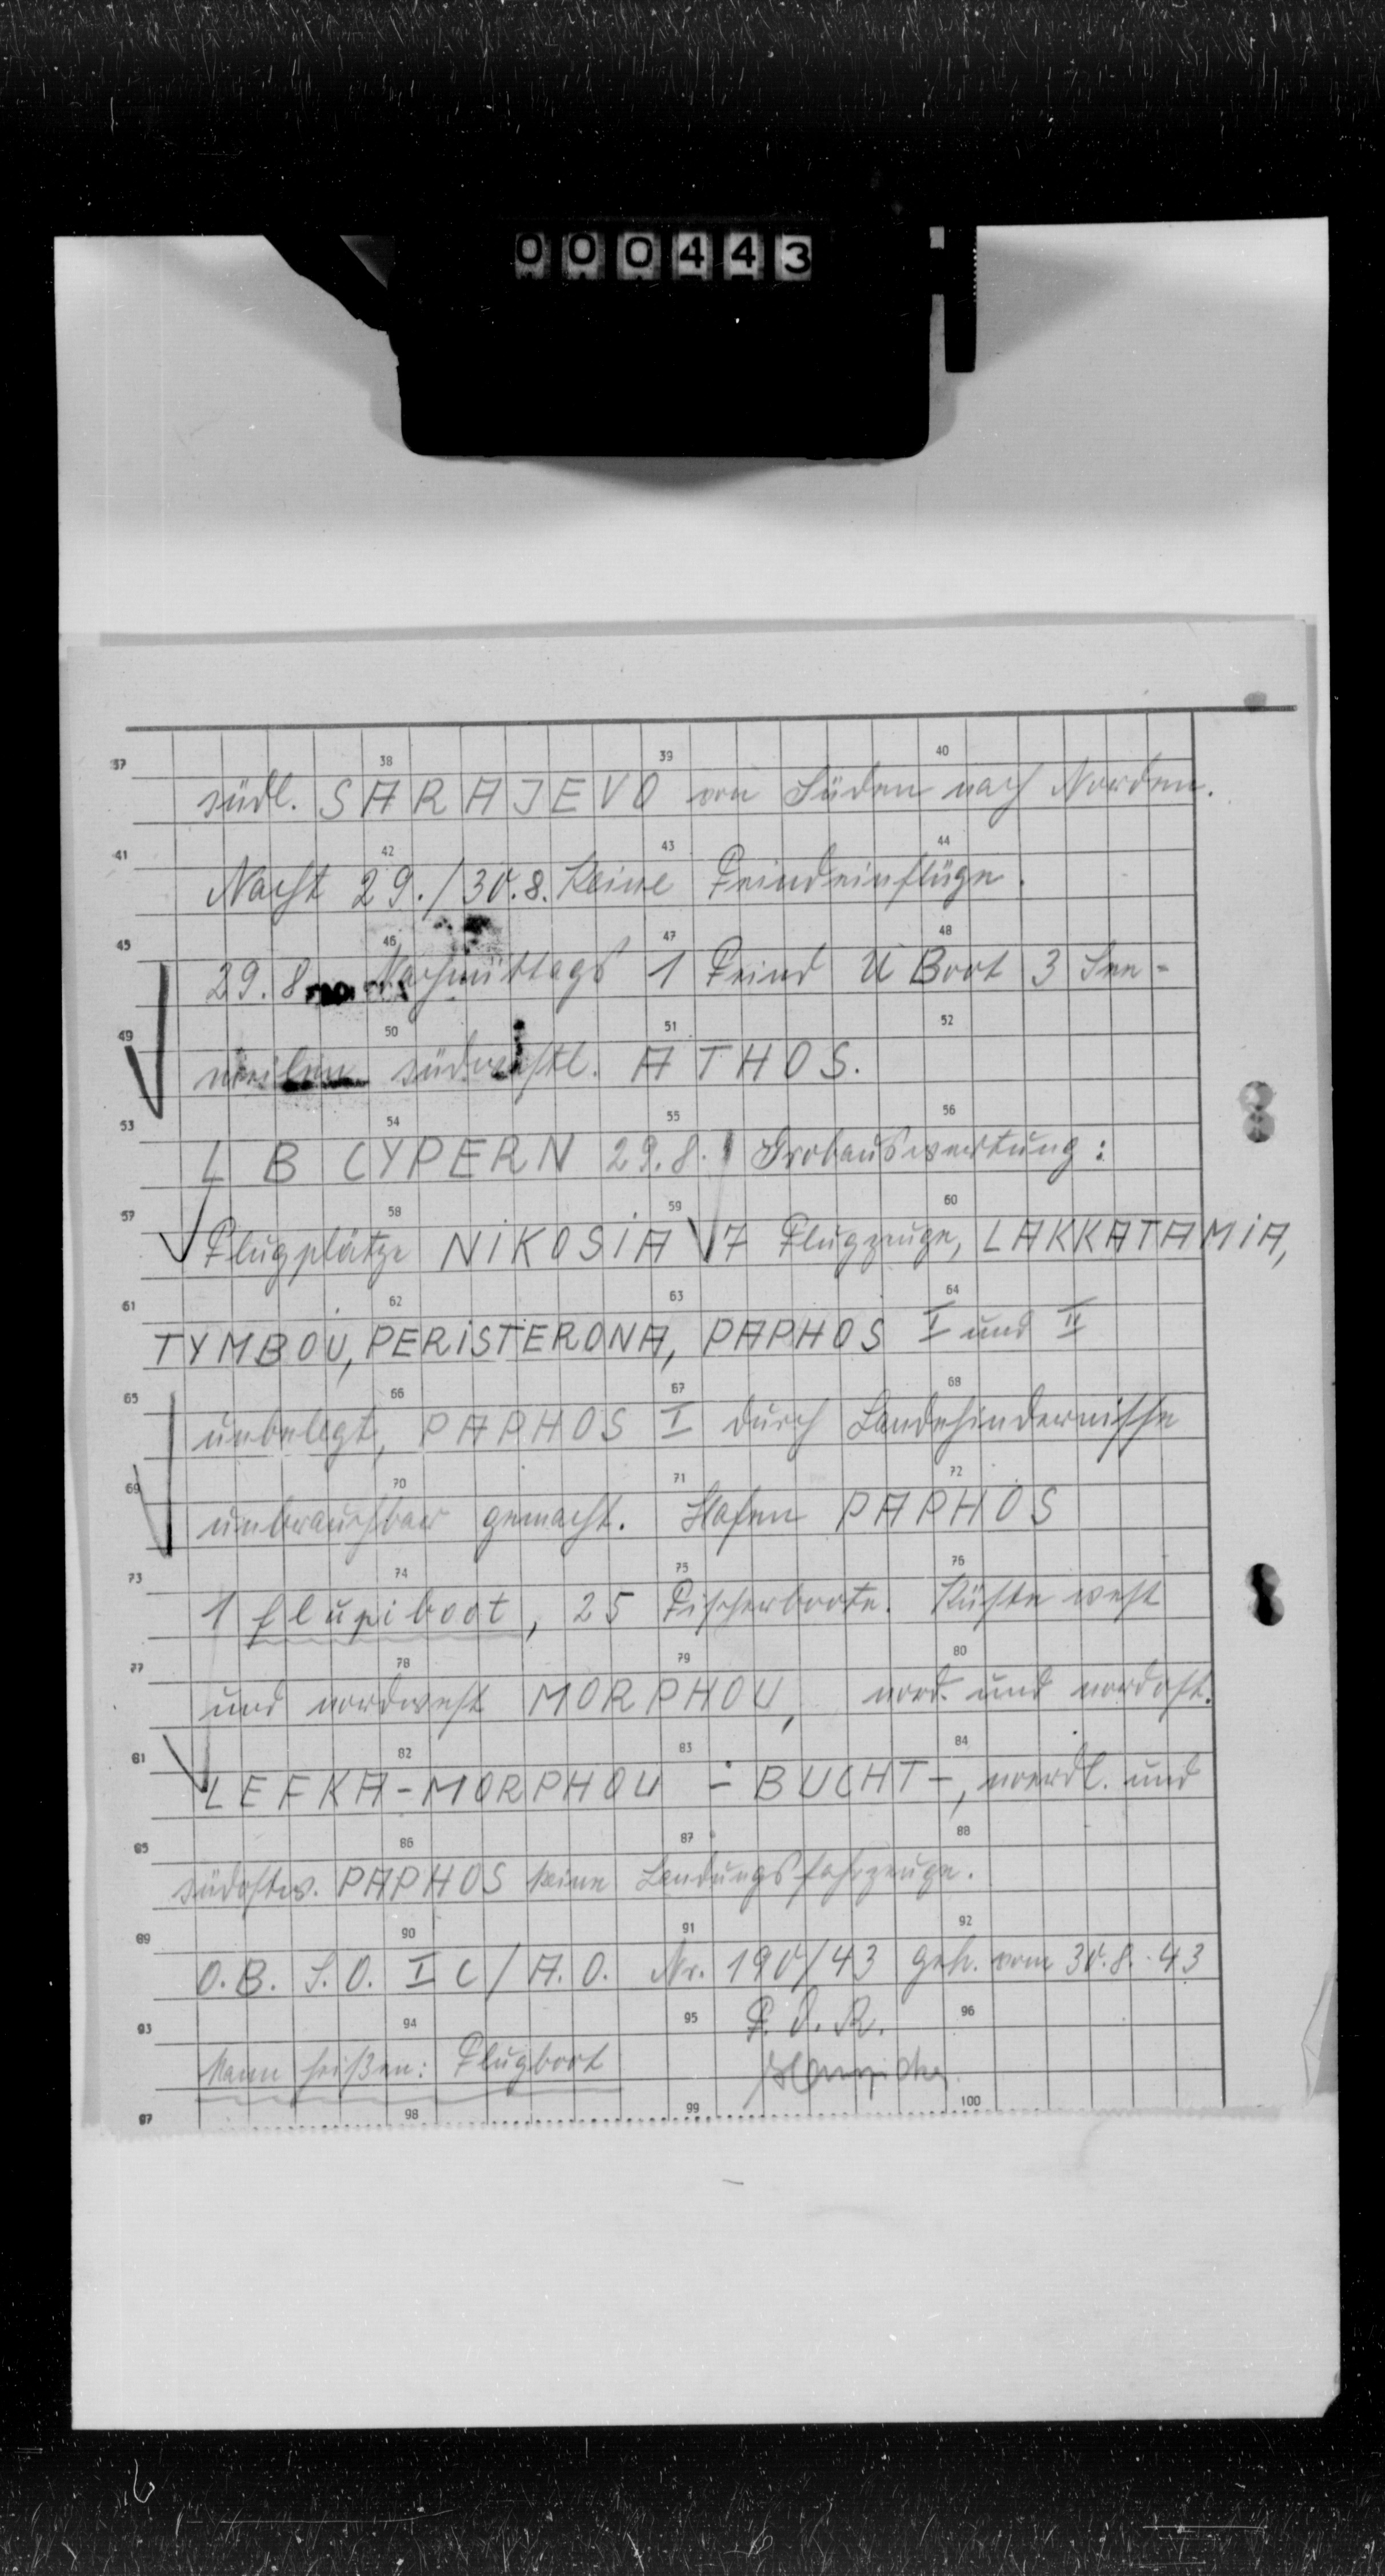 000443
37 38 39 40
südl. SARAJEVO von Süden nach Norden.
41 42 43 44
Nacht 29./30.8. keine Feindeinflüge.
45 46 47 48
29.8. Nachmittags 1 Feind U Boot 3 See-
49 50 51 52
meilen südwestl. ATHOS.
53 54 55 56
L B CYPERN 29.8. Grobauswertung:
57 58 59 60
Flugplätze NIKOSIA 17 Flugzeuge, LAKKATAMIA,
61 62 63 64
TYMBOU, PERISTERONA, PAPHOS I und II
65 66 67 68
unbelegt, PAPHOS I durch Landehindernisse
69 70 71 72
unbrauchbar gemacht. Hafen PAPHOS
73 74 75 76
1 flupiboot, 25 Fischerboote. Küste west
77 78 79 80
und nordwest MORPHOU, nord. und nordost.
81 82 83 84
LEFKA-MORPHOU -BUCHT-, noerdl. und
85 86 87 88
südostw. PAPHOS keine Landungsfahrzeuge.
89 90 91 92
O.B. S.O. I C/A.O. Nr. 190/43 geh. vom 30.8.43
93 94 95 F.d.R. 96
Kann heißen: Flugboot
97 98 99 100